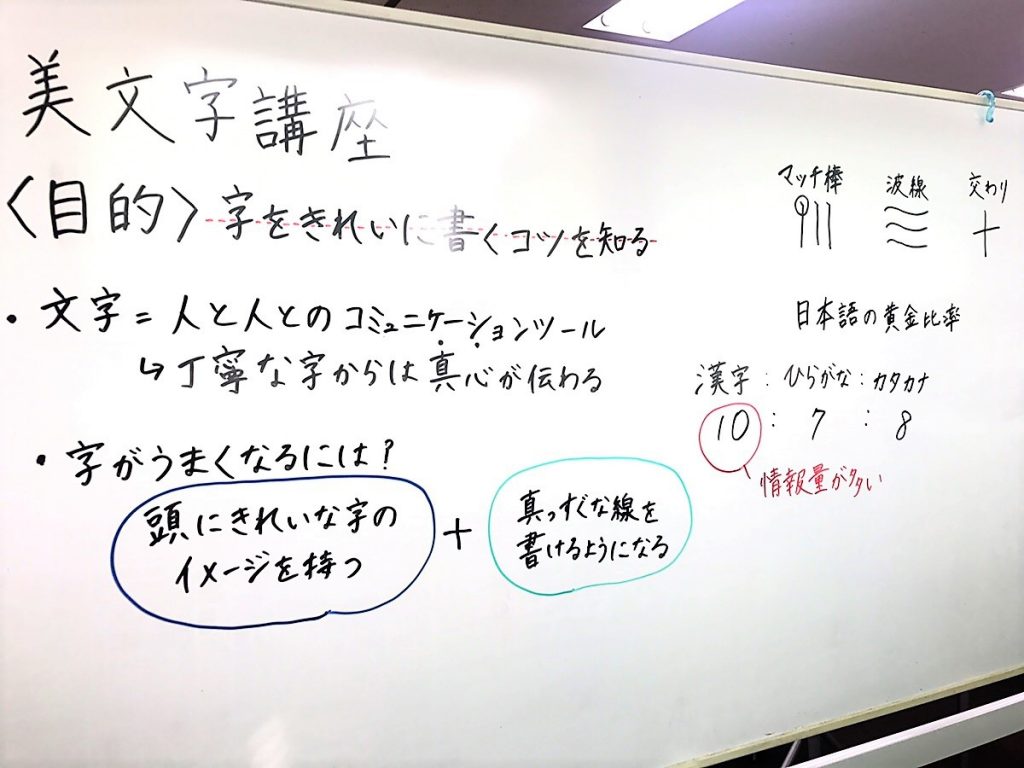 美文字講座
〈目的〉字をきれいに書くコツを知る
・文字=人と人とのコミュニケーションツール
↳丁寧な字からは真心が伝わる
・字がうまくなるには?
頭にきれいな字の
イメージを持つ
+
真っすぐな線を
書けるようになる
マッチ棒 波線 交わり
日本語の黄金比率
漢字:ひらがな:カタカナ
10:7:8
情報量が多い